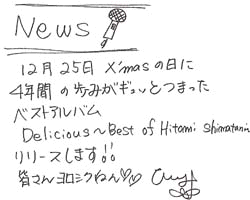 News
12月25日 X'masの日に
4年間の歩みがギュッとつまった
ベストアルバム
Delicious～Best of Hitomi Shimatani～
リリースします!!
皆さんヨロシクねん♡♡